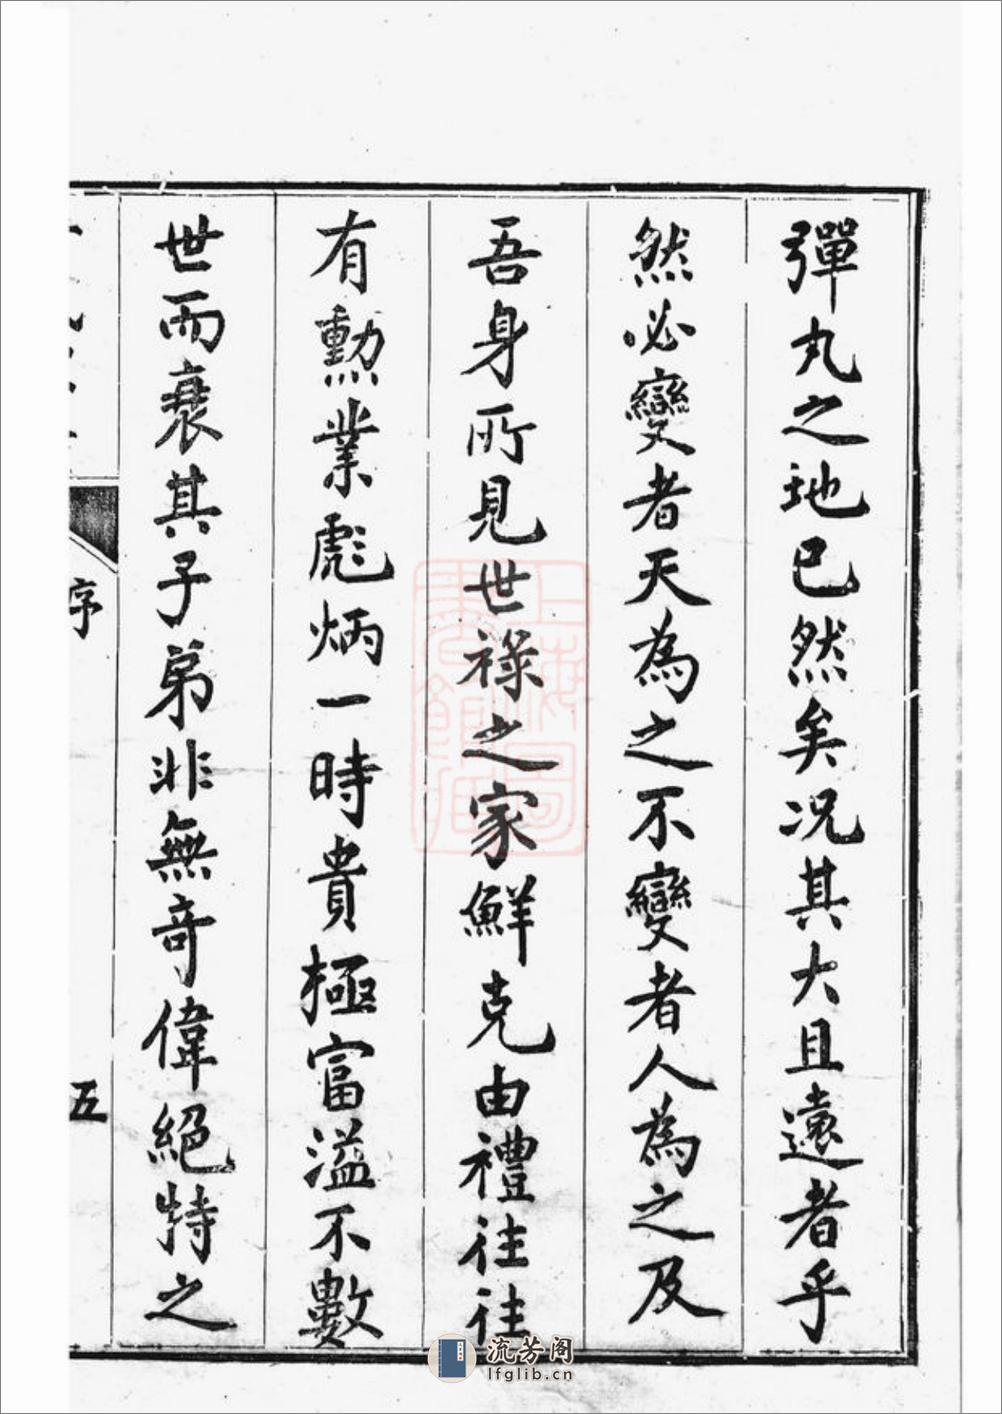 彈丸之地已然矣况其大且遠者乎
然必變者天為之不變者人為之及
吾身所見世祿之家鮮克由禮往往
有勲業彪炳一時貴極富溢不數
世而衰其子弟非無竒偉絕特之
序
五
上海圖書館藏
流芳阁
lfglib.cn